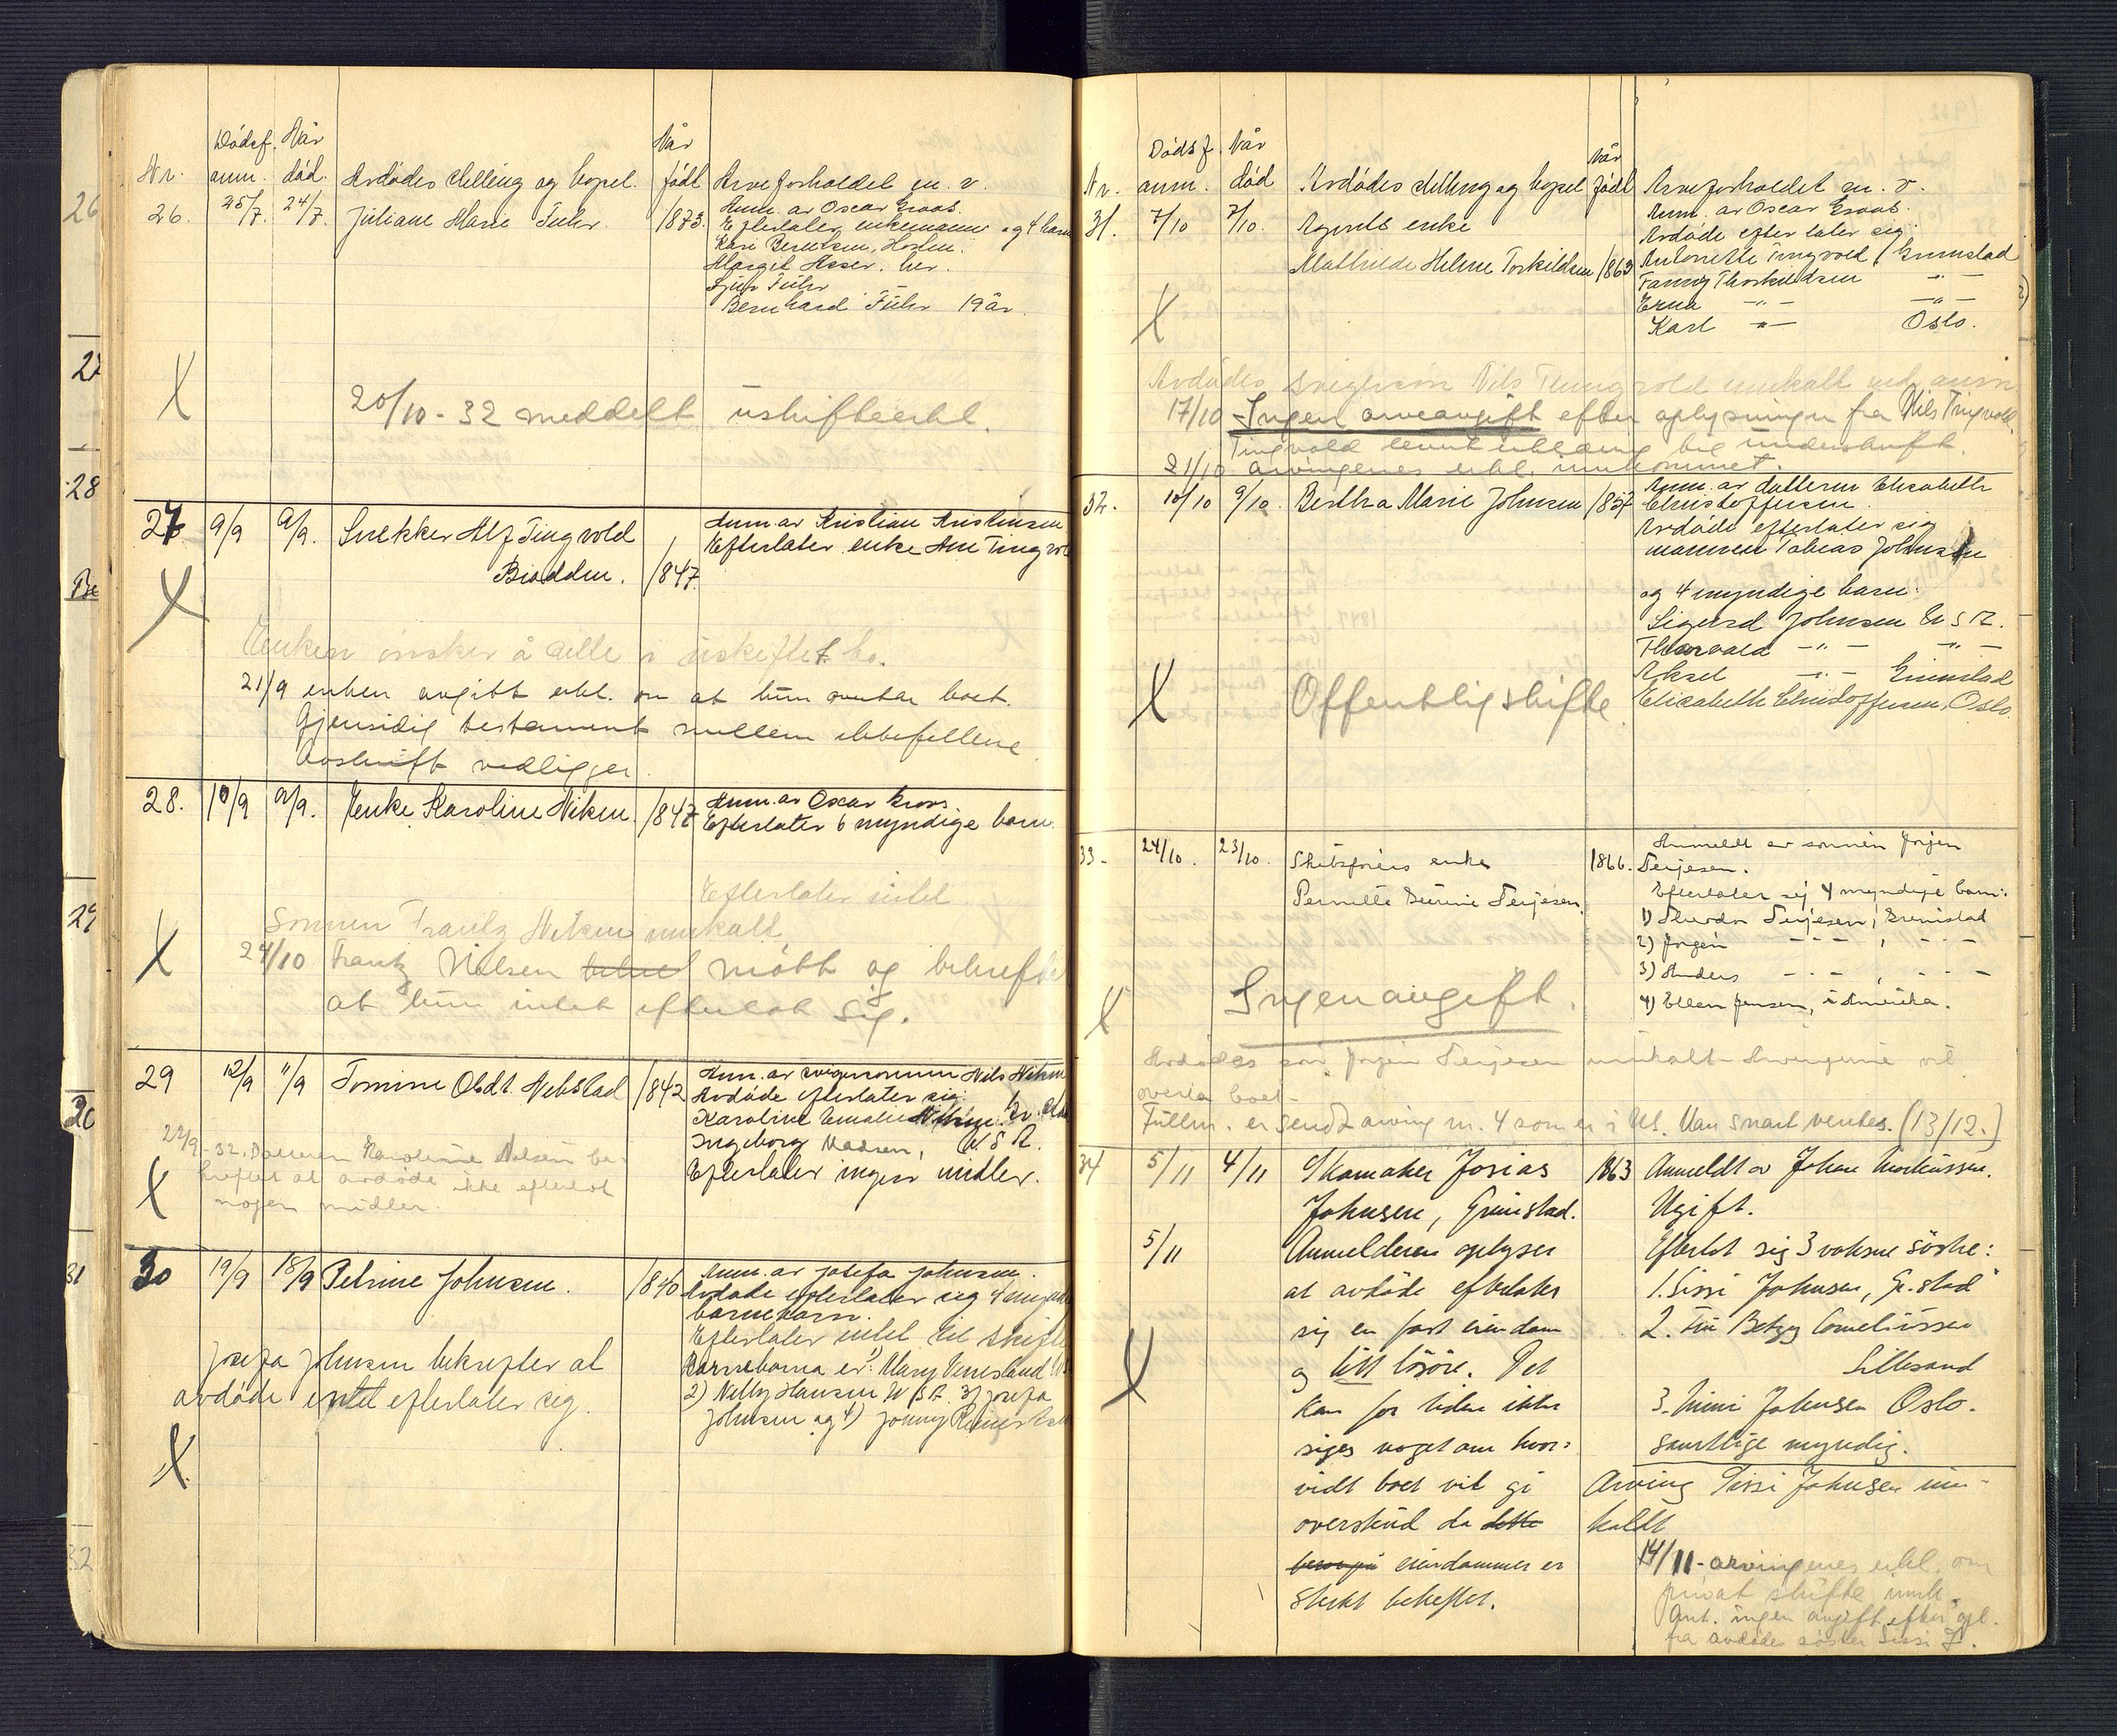 Dødsf. Når Når
Nr. anm. død. Avdødes stilling og bopel. født Arveforholdet m. v.
26. 25/7. 24/7. Juliane Marie Fuhr. 1873. Anm. av Oscar Groos.
Efterlater enkemann og 4 barn
Kari Berntsen,
Margit Asser. her.
Fuhr —
Bernhard Fuhr 19 år.
20/10 - 32 meddelt uskifteerkl.
27 9/9 9/9. Snekker Alf Tingvold Anm. av Kristian Kristensen
Efterlater enke Ane Tingvold
Biodden. 1847.
Enken ønsker å sitte i uskiftet bo.
21/9 enken avgitt erkl. om at hun overtar boet.
Gjensidig testament mellem ektefellene
Avskrift vedligger.
28. 10/9 9/9. Enke Karoline Nilsen 1847 Anm. av Oscar Groos.
Efterlater 6 myndige barn.
Efterlater intet.
Sønnen Frantz Nilsen innkalt
24/10 Frantz Nilsen møtt og bekreftet
at hun intet efterlot sig.
29 12/9 11/9 Tomine Nebstad 1842 Anm. av svigersønnen Nils Nilsen
Avdøde efterlater sig:
Karoline Emalie Nilsen.
Ingeborg Madsen, U S A.
Efterlater ingen midler.
22/9-32. Datteren Karoline Nilsen be-
kreftet at avdøde ikke efterlot
nogen midler.
30 19/9 18/9 Petrine Johnsen. 1840 Anm. av Josefa Johnsen.
Avdøde efterlater sig 4 myndige
barnebarn.
Efterlater intet til skifte
Barnebarna er: 1) Mary Veresland U S
2) Nelly Hansen U S A. 3) Josefa
Johnsen og 4) Jonny
Josefa Johnsen bekrefter at
avdøde intet efterlater sig.
Dødsf. Når Når
Nr. anm. død Avdødes stilling og bopel født Arveforholdet m. v.
31. 7/10 7/10. Agents enke Anm. av Oscar Groos.
Avdøde efterlater sig:
Mathilde Helene Torkildsen 1863 Antonette Tingvold, Grimstad
Fanny Thorkildsen —"—
Erna —"— —"—
Karl —"— Oslo.
Avdødes svigersøn Nils Tingvold innkalt ved anm.
17/10 Ingen arveavgift efter oplysninger fra Nils Tingvold.
Tingvold levert erklæring til underskrift.
21/10 arvingenes erkl. innkommet.
32. 10/10 9/10. Bertha Marie Johnsen 1857 Anm. av datteren Elisabeth
Christoffersen.
Avdøde efterlater sig
mannen Tobias Johnsen
og 4 myndige barn:
Sigurd Johnsen U S A.
Thorvald —"— —"—
Aksel —"— Grimstad
Elisabeth Christoffersen, Oslo.
Offentlig skifte
33. 24/10. 23/10. Skibsførers enke 1866. Anmeldt av sønnen Jørgen
Terjesen.
Pernille Terjesen. Efterlater sig 4 myndige barn:
1) Theodor Terjesen, Grimstad
2) Jørgen — " — , — " —
3) Anders — " — , — " —
4) Ellen Jensen, i Amerika.
Ingen avgift.
Avdødes søn Jørgen Terjesen innkalt. Arvingene vil
overta boet.
Fullm. er sendt arving nr. 4 som er i US. Kan snart ventes. (13/12.)
34 5/11 4/11 Skomaker Josias 1863 Anmeldt av Johan Markussen.
Johnsen, Grimstad. Ugift.
5/11 Anmelderen oplyser Efterlot sig 3 voksne søstre:
at avdøde efterlater 1. Sissi Johnsen, Gr.stad
sig en fast eiendom 2. Fru Betzy Corneliussen
og litt løsøre. Det Lillesand
kan for tiden ikke 3. Mimi Johnsen Oslo.
siges noget om hvor- samtlige myndig.
vidt boet vil gi Arving Sissi Johnsen inn-
overskud da dette kaldt
beror på eiendommen er 14/11 - arvingenes erkl. om
sterkt beheftet. privat skifte innk.
Ant. ingen avgift efter opl.
fra avdødes søster Sissi J.